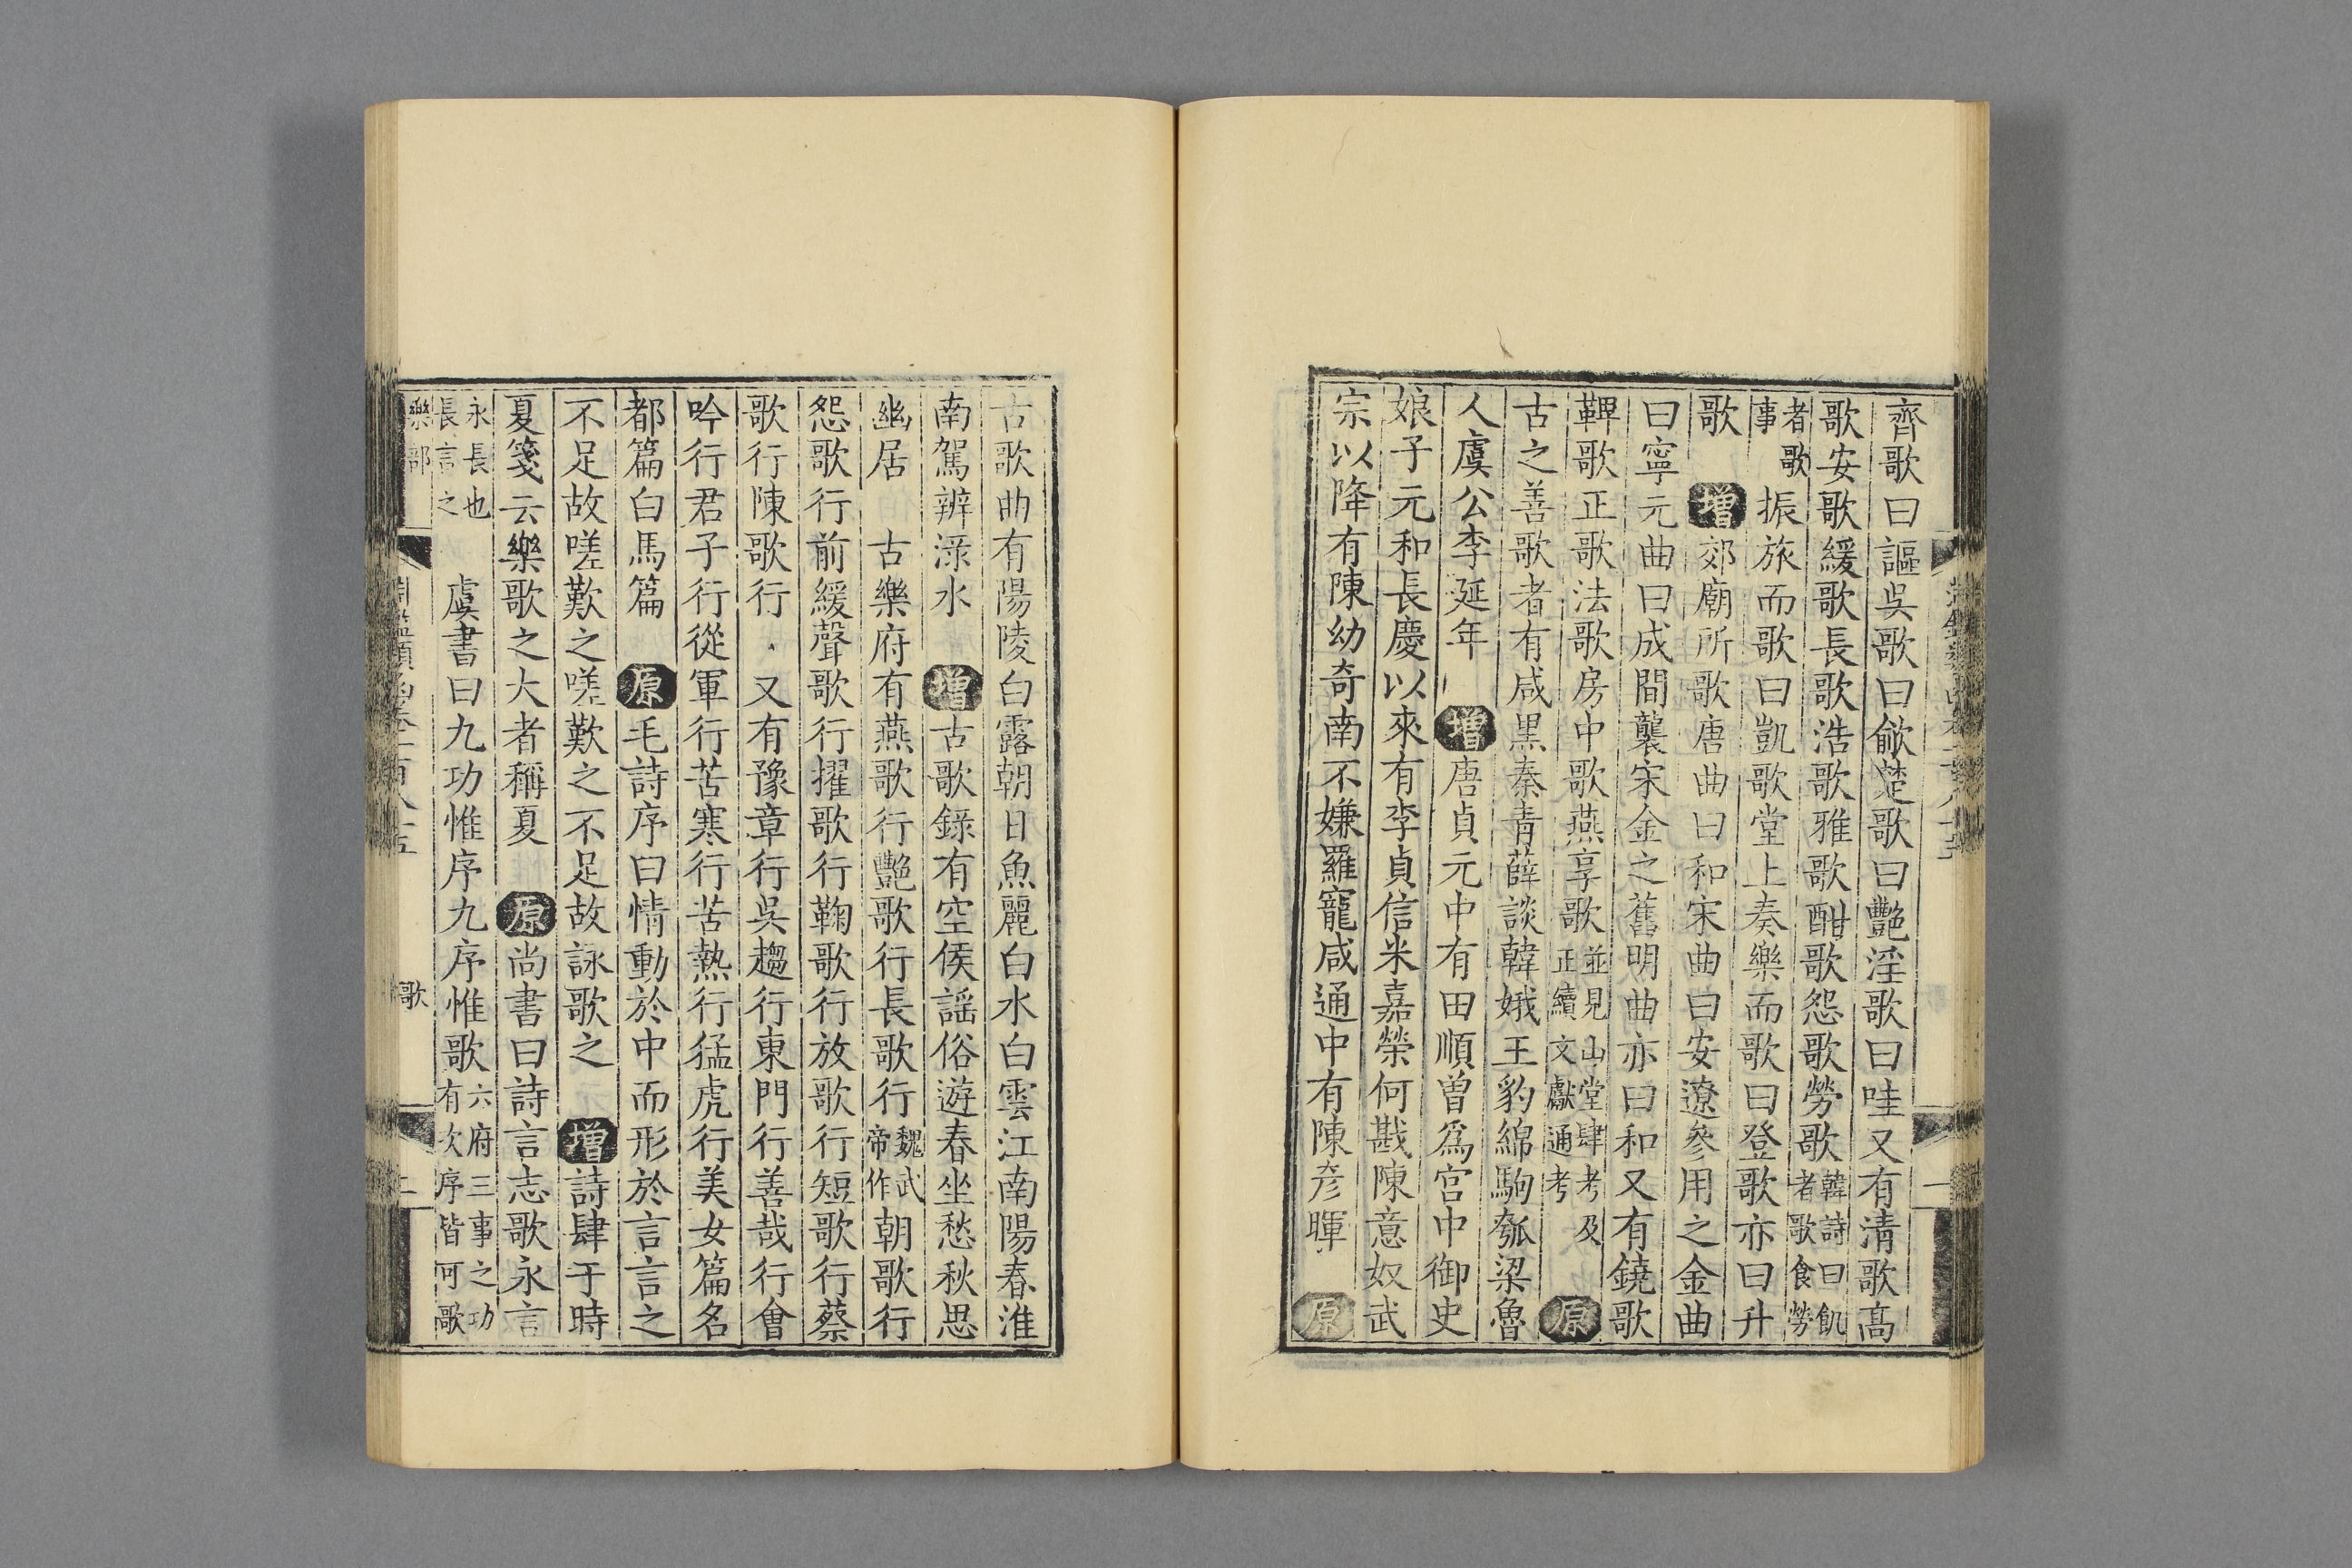 齊歌曰謳吳歌曰歈楚歌曰艷淫歌曰哇又有清歌高
歌安歌緩歌長歌浩歌雅歌酣歌怨歌勞歌韓詩曰飢者歌食勞
者歌事振旅而歌曰凱歌堂上奏樂而歌曰登歌亦曰升
歌 增郊廟所歌唐曲曰和宋曲曰安遼參用之金曲
曰寧元曲曰成間襲宋金之舊明曲亦曰和又有鐃歌
鞞歌正歌法歌房中歌燕享歌並見山堂肆考及正續文獻通考 原
古之善歌者有咸黑秦青薛談韓娥王豹綿駒瓠梁魯
人虞公李延年 增唐貞元中有田順曾爲宮中御史
娘子元和長慶以來有李貞信米嘉榮何戡陳意奴武
宗以降有陳幼奇南不嫌羅寵咸通中有陳彥暉 原
古歌曲有陽陵白露朝日魚麗白水白雲江南陽春淮
南駕辨淥水 增古歌錄有空侯謡俗遊春坐愁秋思
幽居 古樂府有燕歌行艷歌行長歌行魏武帝作朝歌行
怨歌行前緩聲歌行擢歌行鞠歌行放歌行短歌行蔡
歌行陳歌行 又有豫章行吳趨行東門行善哉行會
吟行君子行從軍行苦寒行苦熱行猛虎行美女篇名
都篇白馬篇 原毛詩序曰情動於中而形於言言之
不足故嗟歎之嗟歎之不足故詠歌之 增詩肆于時
夏箋云樂歌之大者稱夏 原尚書曰詩言志歌永言
永長也長言之 虞書曰九功惟序九序惟歌六府三事之功有次序皆可歌
樂部 淵鑑類函卷一百八十五 歌 二